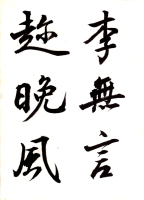 李無言
趁晚風